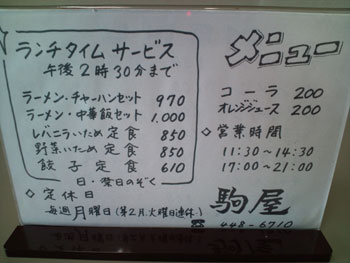 ランチタイム サービス
午後2時30分まで
ラーメン・チャーハンセット 970
ラーメン・中華飯セット 1.000
レバニラいため定食 850
野菜いため定食 850
餃子定食 610
日・祭日のぞく
◇ 定休日
毎週月曜日(第2月.火曜日連休)
メニュー
コーラ 200
オレンジジュース 200
◇ 営業時間
11:30~14:30
17:00~21:00
駒屋
448-6710